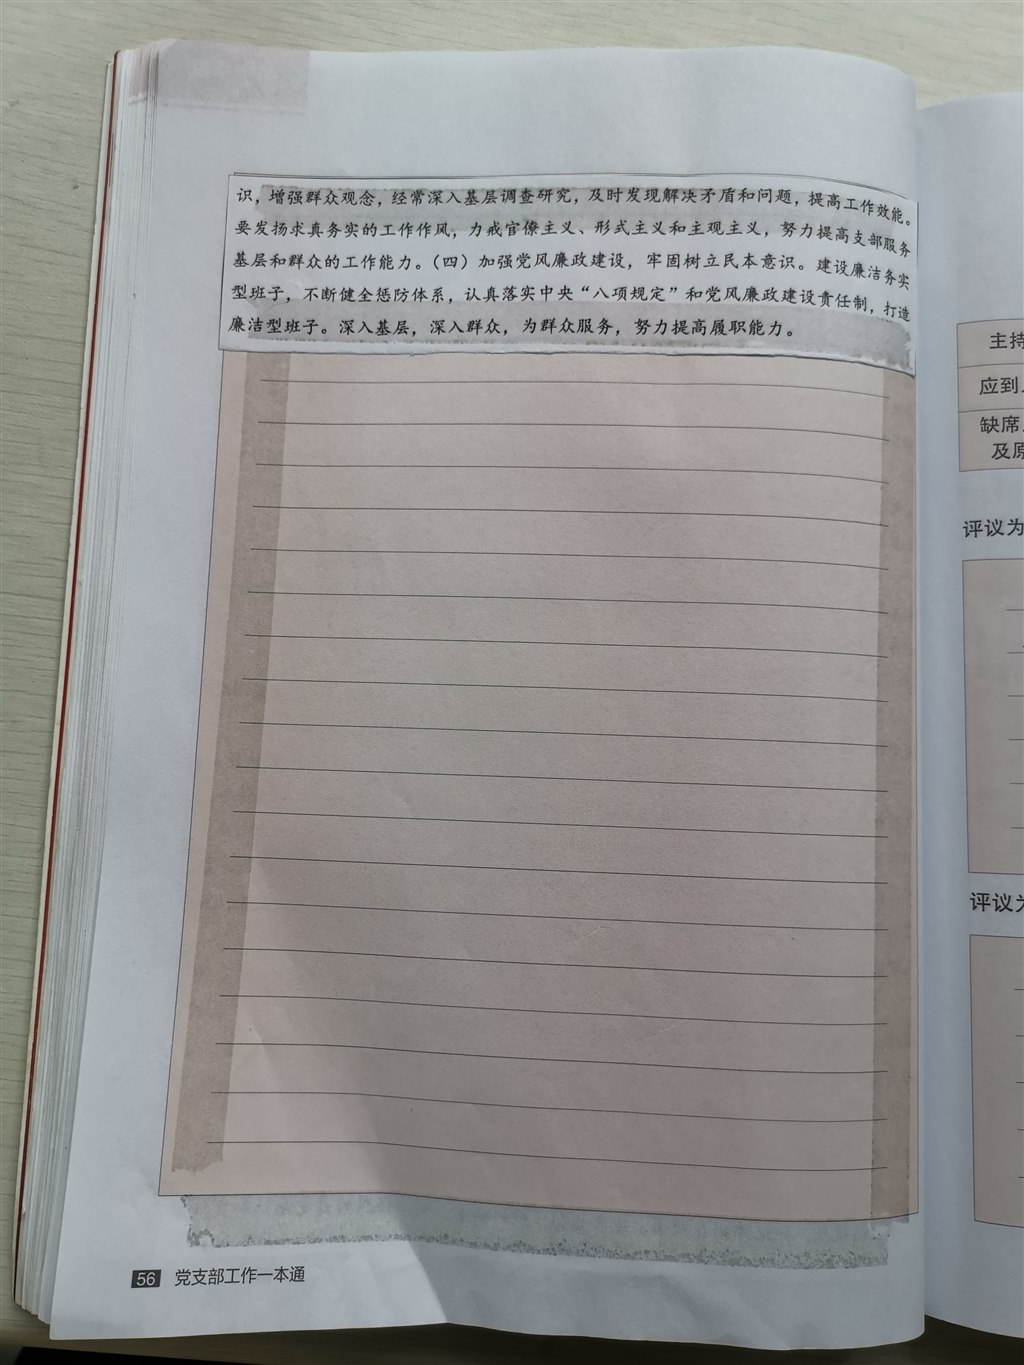 识，增强群众观念，经常深入基层调查研究，及时发现解决矛盾和问题，提高工作效能。
要发扬求真务实的工作作风，力戒官僚主义、形式主义和主观主义，努力提高支部服务
基层和群众的工作能力。（四）加强党风廉政建设，牢固树立民本意识。建设廉洁务实
型班子，不断健全惩防体系，认真落实中央“八项规定”和党风廉政建设责任制，打造
廉洁型班子。深入基层，深入群众，为群众服务，努力提高履职能力。
56 党支部工作一本通
主持
应到
缺席
及原
评议为
评议为